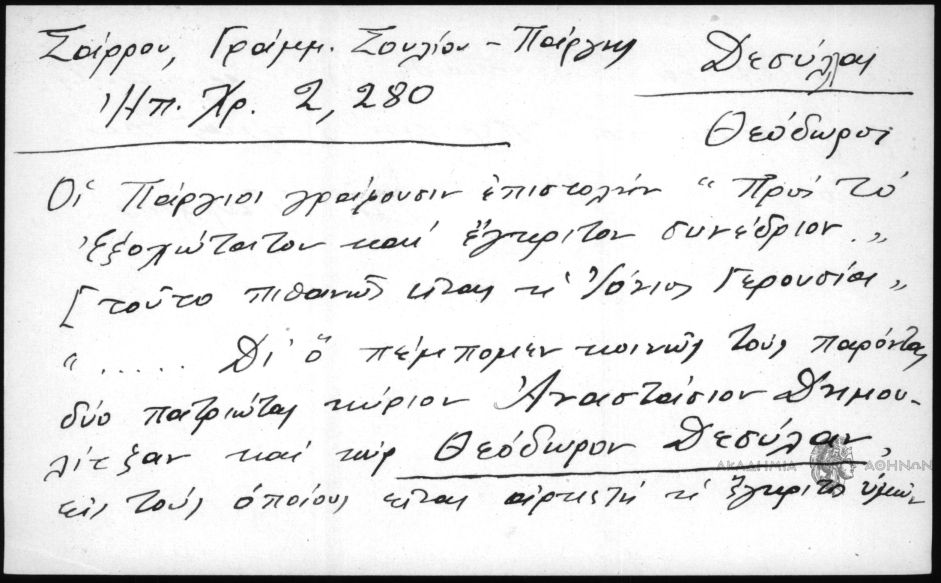 Σάρρου, Γράμμ. Σουλίου - Πάργης
Ἠπ. Χρ. 2, 280
Δεσύλλας
Θεόδωρος
Οἱ Πάργιοι γράφουσιν ἐπιστολὴν "Πρὸς τὸ
ἐξοχώτατον καὶ ἔγκριτον συνέδριον.„
[τοῦτο πιθανῶς εἶναι ἡ Ἰόνιος Γερουσία„
"..... Δι' ὃ πέμπομεν κοινῶς τοὺς παρόντας
δύο πατριώτας κύριον Ἀναστάσιον Δημου-
λίτζαν καὶ κύρ Θεόδωρον Δεσύλαν,
ΑΚΑΔΗΜΙΑ ΑΘΗΝΩΝ
εἰς τοὺς ὁποίους εἶναι ἀρκετὴ ἡ ἔγκριτο ὑμῶν